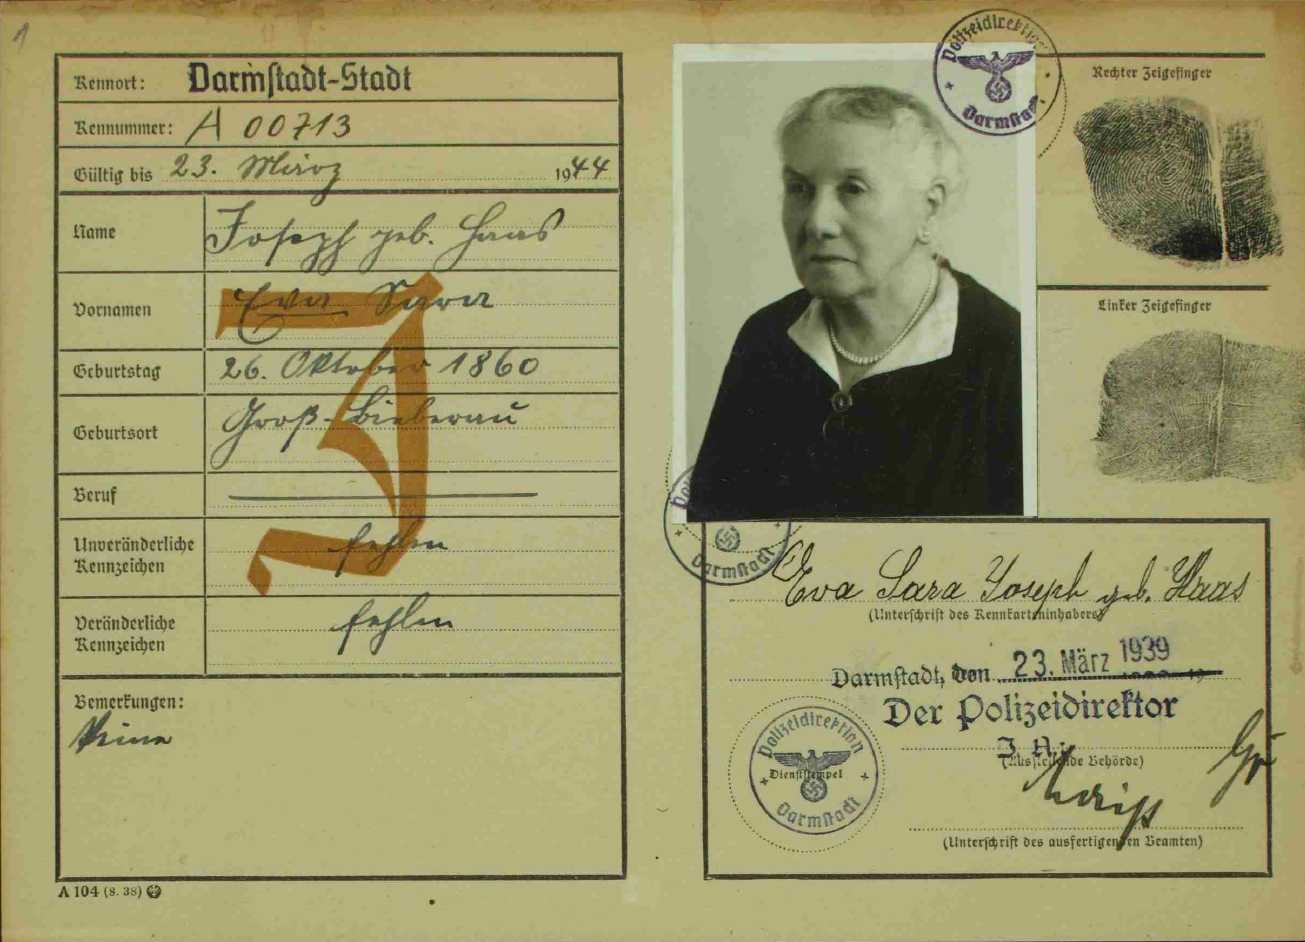 1
Kennort: Darmstadt-Stadt
Kennummer: A 00713
Gültig bis 23. März 1944
Name Joseph geb. Haas
Vornamen Eva Sara
J
Geburtstag 26. Oktober 1860
Geburtsort Groß-Bieberau
Beruf
Unveränderliche
Kennzeichen fehlen
Veränderliche
Kennzeichen fehlen
Bemerkungen:
Keine
A 104 (8. 38)
Polizeidirektion
Darmstadt
Rechter Zeigefinger
Linker Zeigefinger
Darmstadt
Eva Sara Joseph geb. Haas
(Unterschrift des Kennkarteninhabers)
Darmstadt, den 23. März 1939
Der Polizeidirektor
J. A.
(Ausstellende Behörde)
Polizeidirektion
Dienststempel
Darmstadt
(Unterschrift des ausfertigenden Beamten)